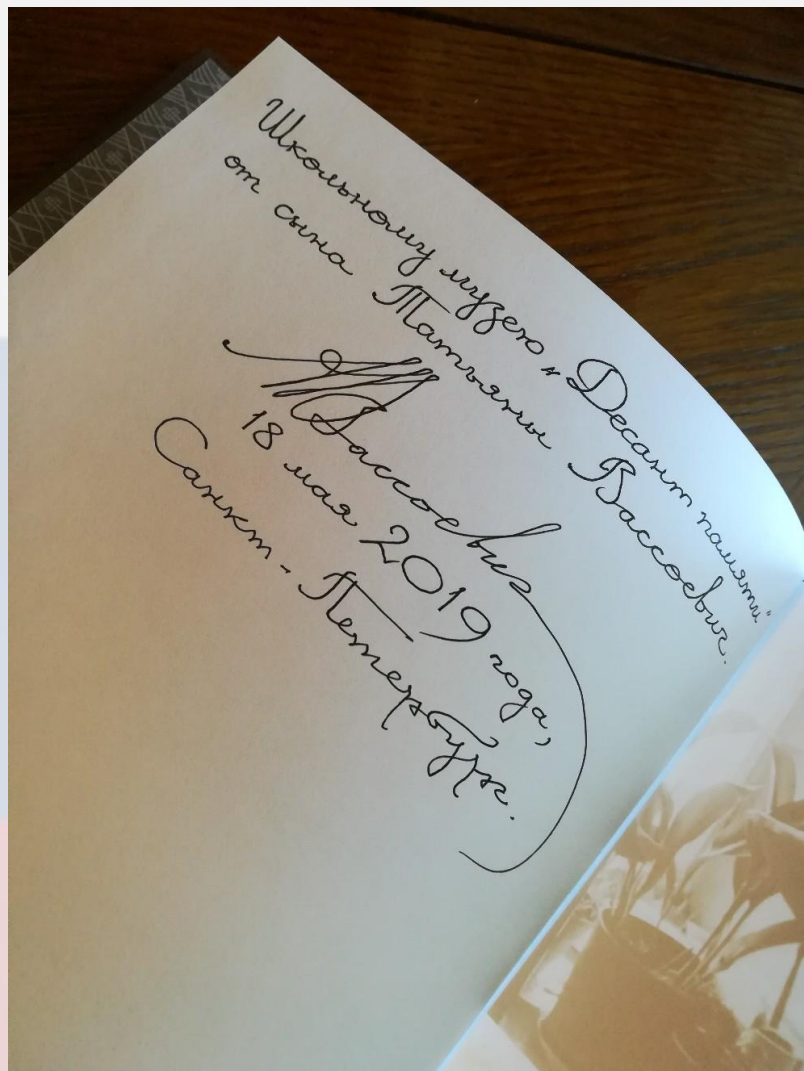 Школьному музею „Десант памяти"
от сына Татьяны Вассоевич.
АВассоевич
18 мая 2019 года,
Санкт-Петербург.